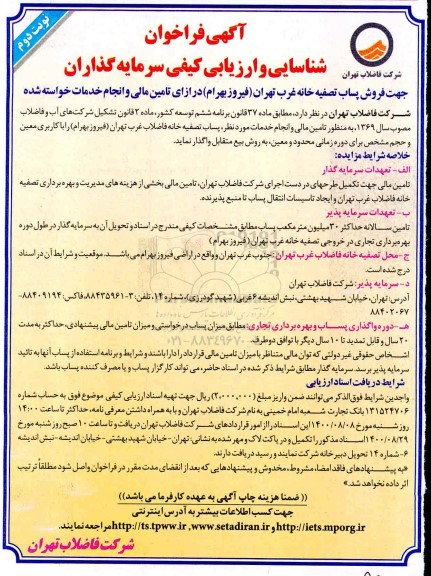 نوبت دوم
آگهی فراخوان
شناسایی و ارزیابی کیفی سرمایه گذاران
شرکت فاضلاب تهران
جهت فروش پساب تصفیه خانه غرب تهران (فیروز بهرام) در ازای تامین مالی و انجام خدمات خواسته شده
شرکت فاضلاب تهران در نظر دارد، مطابق ماده ۳۷ قانون برنامه ششم توسعه کشور، ماده ۲ قانون تشکیل شرکت های آب و فاضلاب
مصوب سال ۱۳۶۹، به منظور تامین مالی و انجام خدمات مورد نظر، پساب تصفیه خانه فاضلاب غرب تهران (فیروز بهرام) را با کاربری معین
و حجم مشخص برای دوره زمانی محدود و معین، به روش بیع متقابل واگذار نماید.
خلاصه شرایط مزایده:
الف - تعهدات سرمایه گذار
تامین مالی جهت تکمیل طرحهای در دست اجرای شرکت فاضلاب تهران، تامین مالی بخشی از هزینه های مدیریت و بهره برداری تصفیه
خانه فاضلاب غرب تهران و ایجاد تاسیسات انتقال پساب تا منبع پذیرنده.
ب - تعهدات سرمایه پذیر
تامین سالانه حداکثر ۳۰ میلیون متر مکعب پساب مطابق مشخصات کیفی مندرج در اسناد و تحویل آن به سرمایه گذار در طول دوره
بهره برداری تجاری در خروجی تصفیه خانه غرب تهران (فیروز بهرام)
ج - محل تصفیه خانه فاضلاب غرب تهران: جنوب غرب تهران و واقع در اراضی فیروز بهرام می باشد. موقعیت و شرایط آن در اسناد
درج شده است.
د - سرمایه پذیر: شرکت فاضلاب تهران
آدرس: تهران، خیابان شهید بهشتی، نبش اندیشه ۶ غربی (شهید گودرزی)، شماره ۱۴، تلفن: ۳-۸۸۴۳۵۹۶۱ فاکس: ۸۸۴۰۹۱۹۴-
۸۸۴۰۲۰۶۷
هـ - دوره واگذاری پساب و بهره برداری تجاری: مطابق میزان پساب درخواستی و میزان تامین مالی پیشنهادی، حداکثر به مدت
۲۰ سال و قابل تمدید تا ۱۰ سال دیگر با توافق دو طرف.
اشخاص حقوقی غیر دولتی که توان مالی متناظر با میزان تامین مالی قرارداد را دارا باشند و شرایط و برنامه استفاده از پساب آنها به تائید
سرمایه پذیر برسد. سرمایه گذار مطابق شرایط ذکر شده در اسناد حاضر، می تواند کارگزار پساب و یا مصرف کننده پساب باشد.
شرایط دریافت اسناد ارزیابی
واجدین شرایط فوق الذکر می توانند ضمن واریز مبلغ (۲,۰۰۰,۰۰۰) ریال جهت تهیه اسناد ارزیابی کیفی موضوع فوق به حساب شماره
۱۳۱۵۲۴۷۰۶ بانک تجارت شعبه امام خمینی به نام شرکت فاضلاب تهران و با به همراه داشتن معرفی نامه، حداکثر تا ساعت ۱۴:۰۰
روز شنبه مورخ ۱۴۰۰/۰۸/۰۸ این اسناد را از امور قراردادهای شرکت فاضلاب تهران دریافت و تا ساعت ۱۰ صبح روز شنبه مورخ
۱۴۰۰/۰۸/۲۹ اسناد مذکور را تکمیل و در پاکت لاک و مهر شده به نشانی: تهران - خیابان شهید بهشتی - خیابان اندیشه - نبش اندیشه
۶ - شماره ۱۴ تحویل دبیرخانه شرکت نمایند و رسید دریافت دارند.
«به پیشنهادهای فاقد امضا، مشروط، مخدوش و پیشنهادهایی که بعد از انقضای مدت مقرر در فراخوان واصل شود مطلقاً ترتیب
اثر داده نخواهد شد.»
(( ضمنا هزینه چاپ آگهی به عهده کارفرما می باشد ))
جهت کسب اطلاعات بیشتر به آدرس اینترنتی
http://iets.mporg.ir و www.setadiran.ir، http://ts.tpww.ir مراجعه نمایند.
شرکت فاضلاب تهران